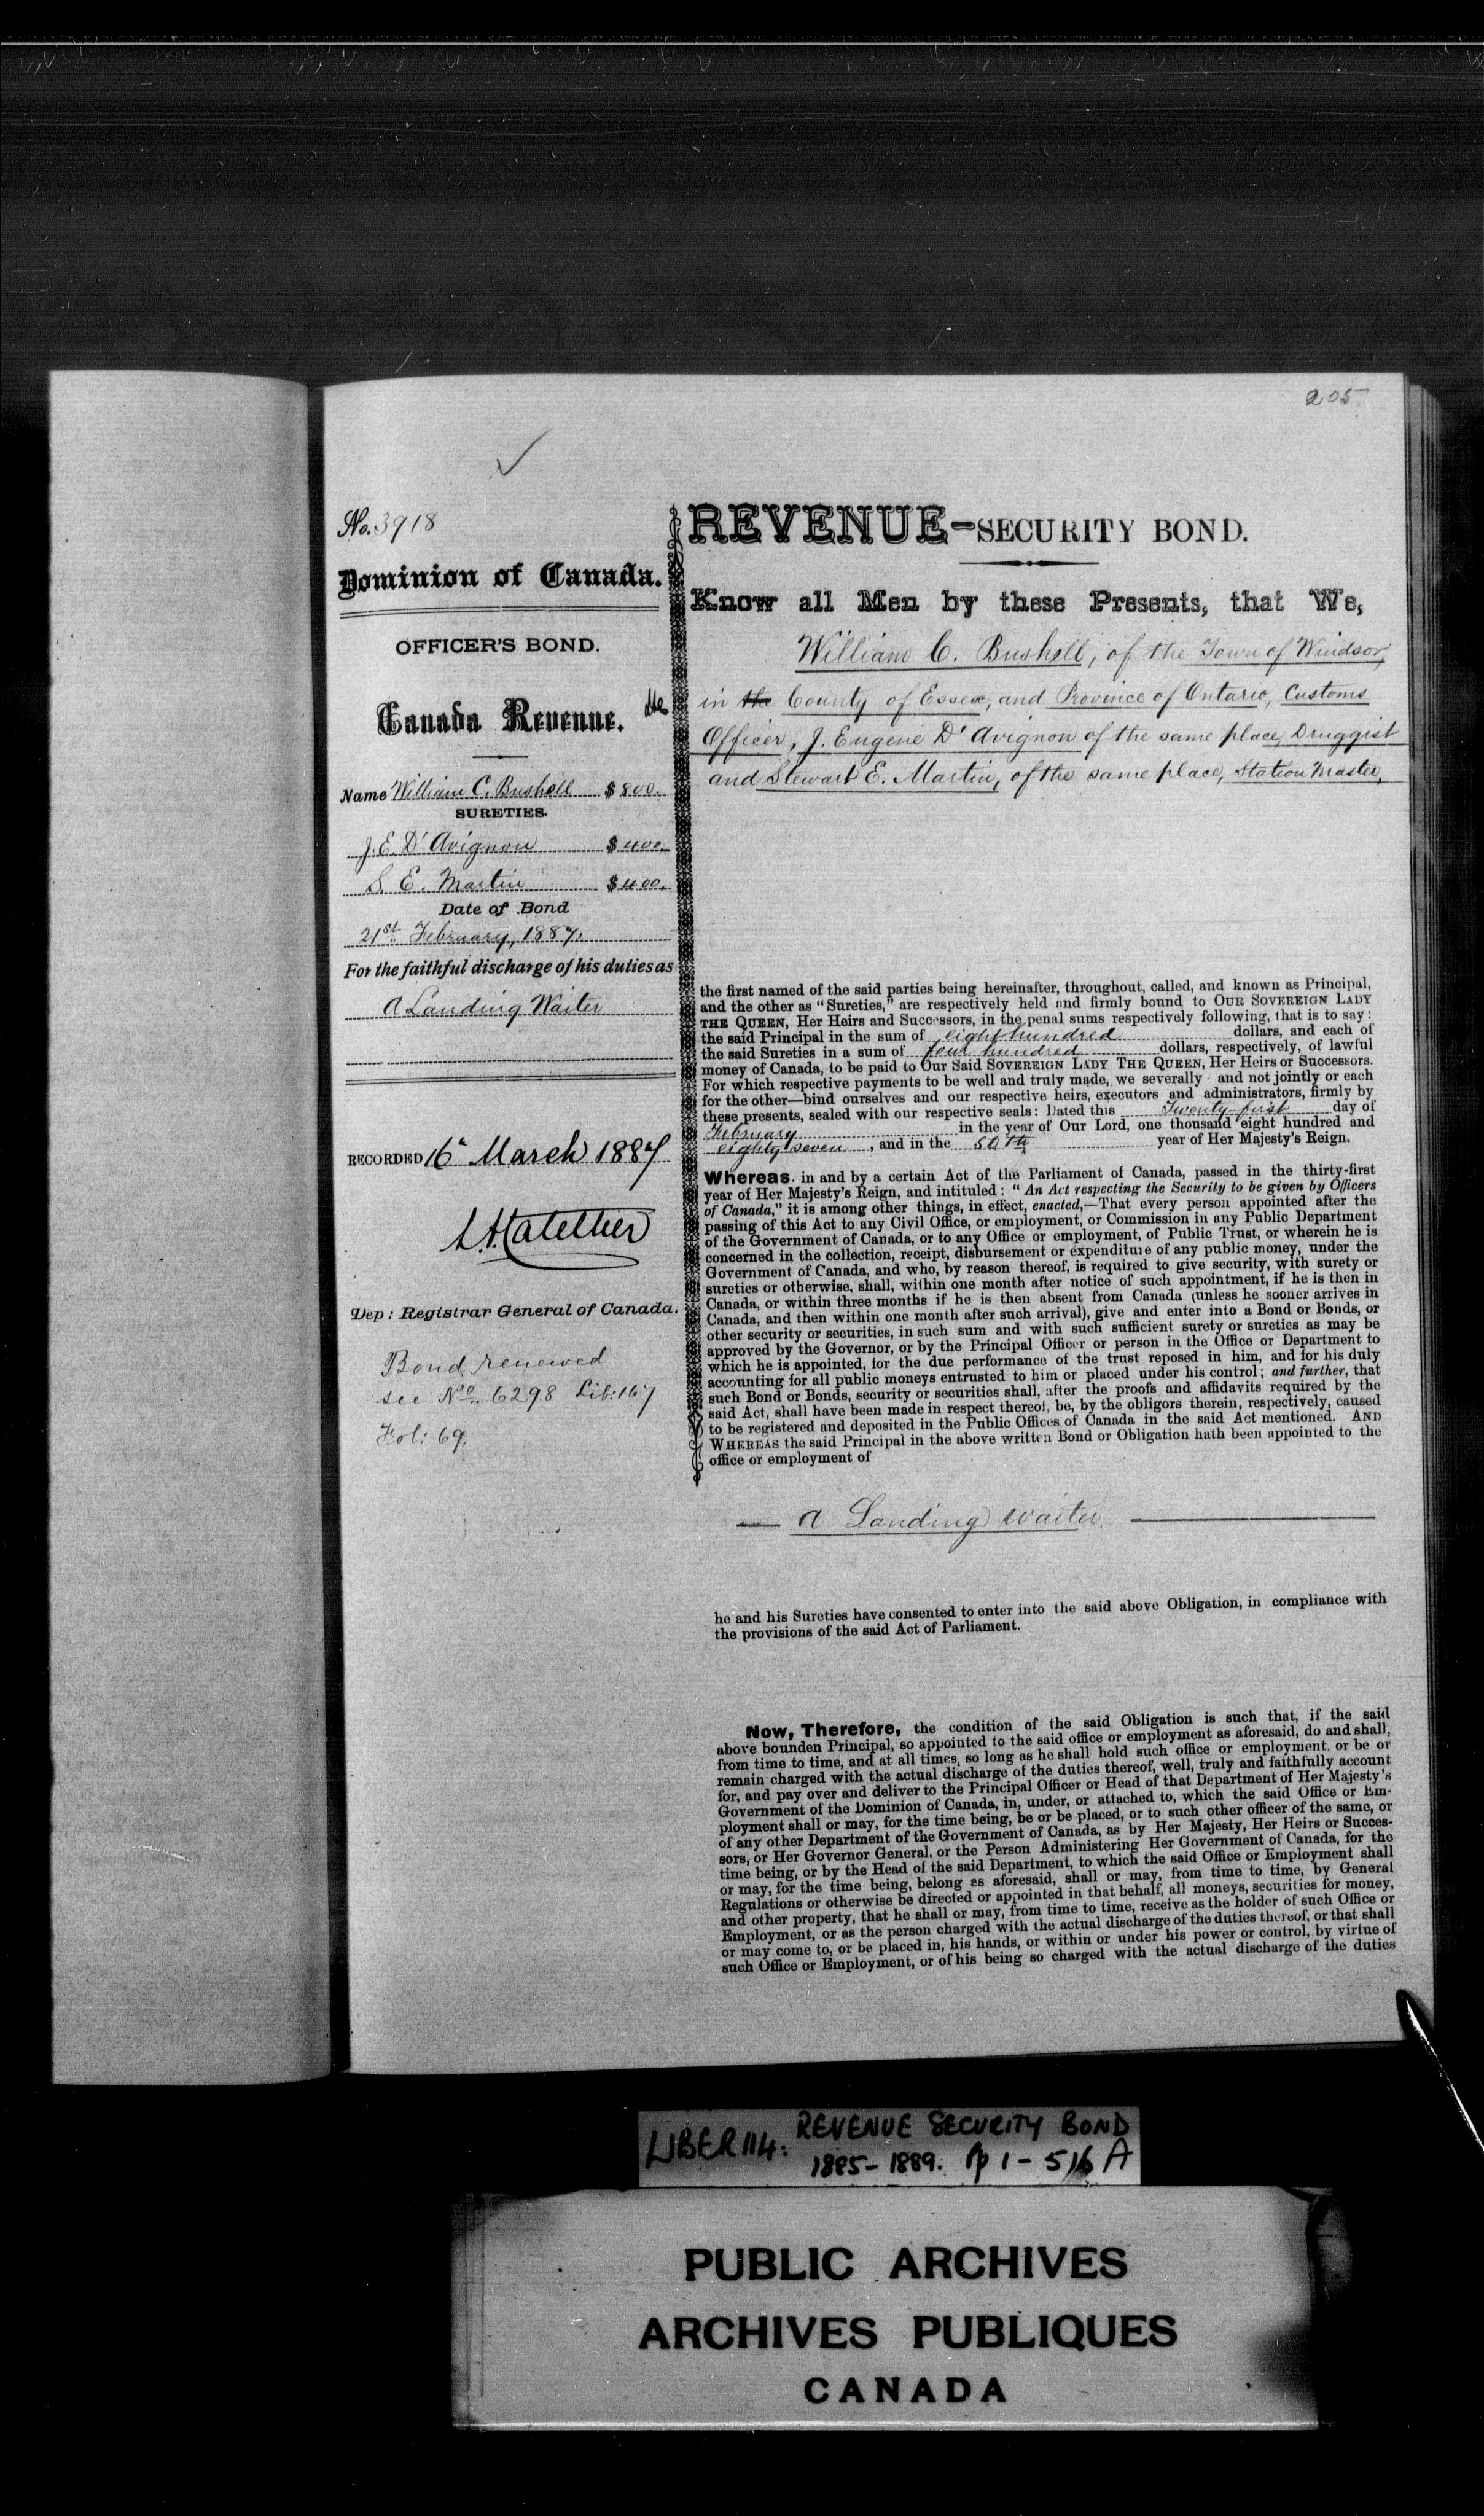 205.
No. 3918
Dominion of Canada.
OFFICER'S BOND.
Canada Revenue.
Name William C. Bushell $800.
SURETIES.
J. E. D'Avignon $400.
S. E. Martin $400.
Date of Bond
21st February, 1887.
For the faithful discharge of his duties as
a Landing Waiter
RECORDED 16 March 1887
Dep: Registrar General of Canada.
Bond renewed
see No. 6298 Lib: 167
Fol: 69.
REVENUE-SECURITY BOND.
Know all Men by these Presents, that We,
William C. Bushell, of the Town of Windsor,
in the County of Essex, and Province of Ontario, Customs
Officer, J. Eugene D'Avignon of the same place, Druggist
and Stewart E. Martin, of the same place, Station Master,
the first named of the said parties being hereinafter, throughout, called, and known as Principal,
and the other as "Sureties," are respectively held and firmly bound to OUR SOVEREIGN LADY
THE QUEEN, Her Heirs and Successors, in the penal sums respectively following, that is to say:
the said Principal in the sum of eight hundred dollars, and each of
the said Sureties in a sum of four hundred dollars, respectively, of lawful
money of Canada, to be paid to Our Said SOVEREIGN LADY THE QUEEN, Her Heirs or Successors.
For which respective payments to be well and truly made, we severally and not jointly or each
for the other—bind ourselves and our respective heirs, executors and administrators, firmly by
these presents, sealed with our respective seals: Dated this Twenty first day of
February in the year of Our Lord, one thousand eight hundred and
eighty seven, and in the 50th year of Her Majesty's Reign.
Whereas, in and by a certain Act of the Parliament of Canada, passed in the thirty-first
year of Her Majesty's Reign, and intituled: "An Act respecting the Security to be given by Officers
of Canada," it is among other things, in effect, enacted,—That every person appointed after the
passing of this Act to any Civil Office, or employment, or Commission in any Public Department
of the Government of Canada, or to any Office or employment, of Public Trust, or wherein he is
concerned in the collection, receipt, disbursement or expenditure of any public money, under the
Government of Canada, and who, by reason thereof, is required to give security, with surety or
sureties or otherwise, shall, within one month after notice of such appointment, if he is then in
Canada, or within three months if he is then absent from Canada (unless he sooner arrives in
Canada, and then within one month after such arrival), give and enter into a Bond or Bonds, or
other security or securities, in such sum and with such sufficient surety or sureties as may be
approved by the Governor, or by the Principal Officer or person in the Office or Department to
which he is appointed, for the due performance of the trust reposed in him, and for his duly
accounting for all public moneys entrusted to him or placed under his control; and further, that
such Bond or Bonds, security or securities shall, after the proofs and affidavits required by the
said Act, shall have been made in respect thereof, be, by the obligors therein, respectively, caused
to be registered and deposited in the Public Offices of Canada in the said Act mentioned. AND
WHEREAS the said Principal in the above written Bond or Obligation hath been appointed to the
office or employment of
a Landing Waiter.
he and his Sureties have consented to enter into the said above Obligation, in compliance with
the provisions of the said Act of Parliament.
Now, Therefore, the condition of the said Obligation is such that, if the said
above bounden Principal, so appointed to the said office or employment as aforesaid, do and shall,
from time to time, and at all times, so long as he shall hold such office or employment, or be or
remain charged with the actual discharge of the duties thereof, well, truly and faithfully account
for, and pay over and deliver to the Principal Officer or Head of that Department of Her Majesty's
Government of the Dominion of Canada, in, under, or attached to, which the said Office or Em-
ployment shall or may, for the time being, be or be placed, or to such other officer of the same, or
of any other Department of the Government of Canada, as by Her Majesty, Her Heirs or Succes-
sors, or Her Governor General, or the Person Administering Her Government of Canada, for the
time being, or by the Head of the said Department, to which the said Office or Employment shall
or may, for the time being, belong as aforesaid, shall or may, from time to time, by General
Regulations or otherwise be directed or appointed in that behalf, all moneys, securities for money,
and other property, that he shall or may, from time to time, receive as the holder of such Office or
Employment, or as the person charged with the actual discharge of the duties thereof, or that shall
or may come to, or be placed in, his hands, or within or under his power or control, by virtue of
such Office or Employment, or of his being so charged with the actual discharge of the duties
LIBER 114: REVENUE SECURITY BOND
1885-1889. pp 1-516 A
PUBLIC ARCHIVES
ARCHIVES PUBLIQUES
CANADA